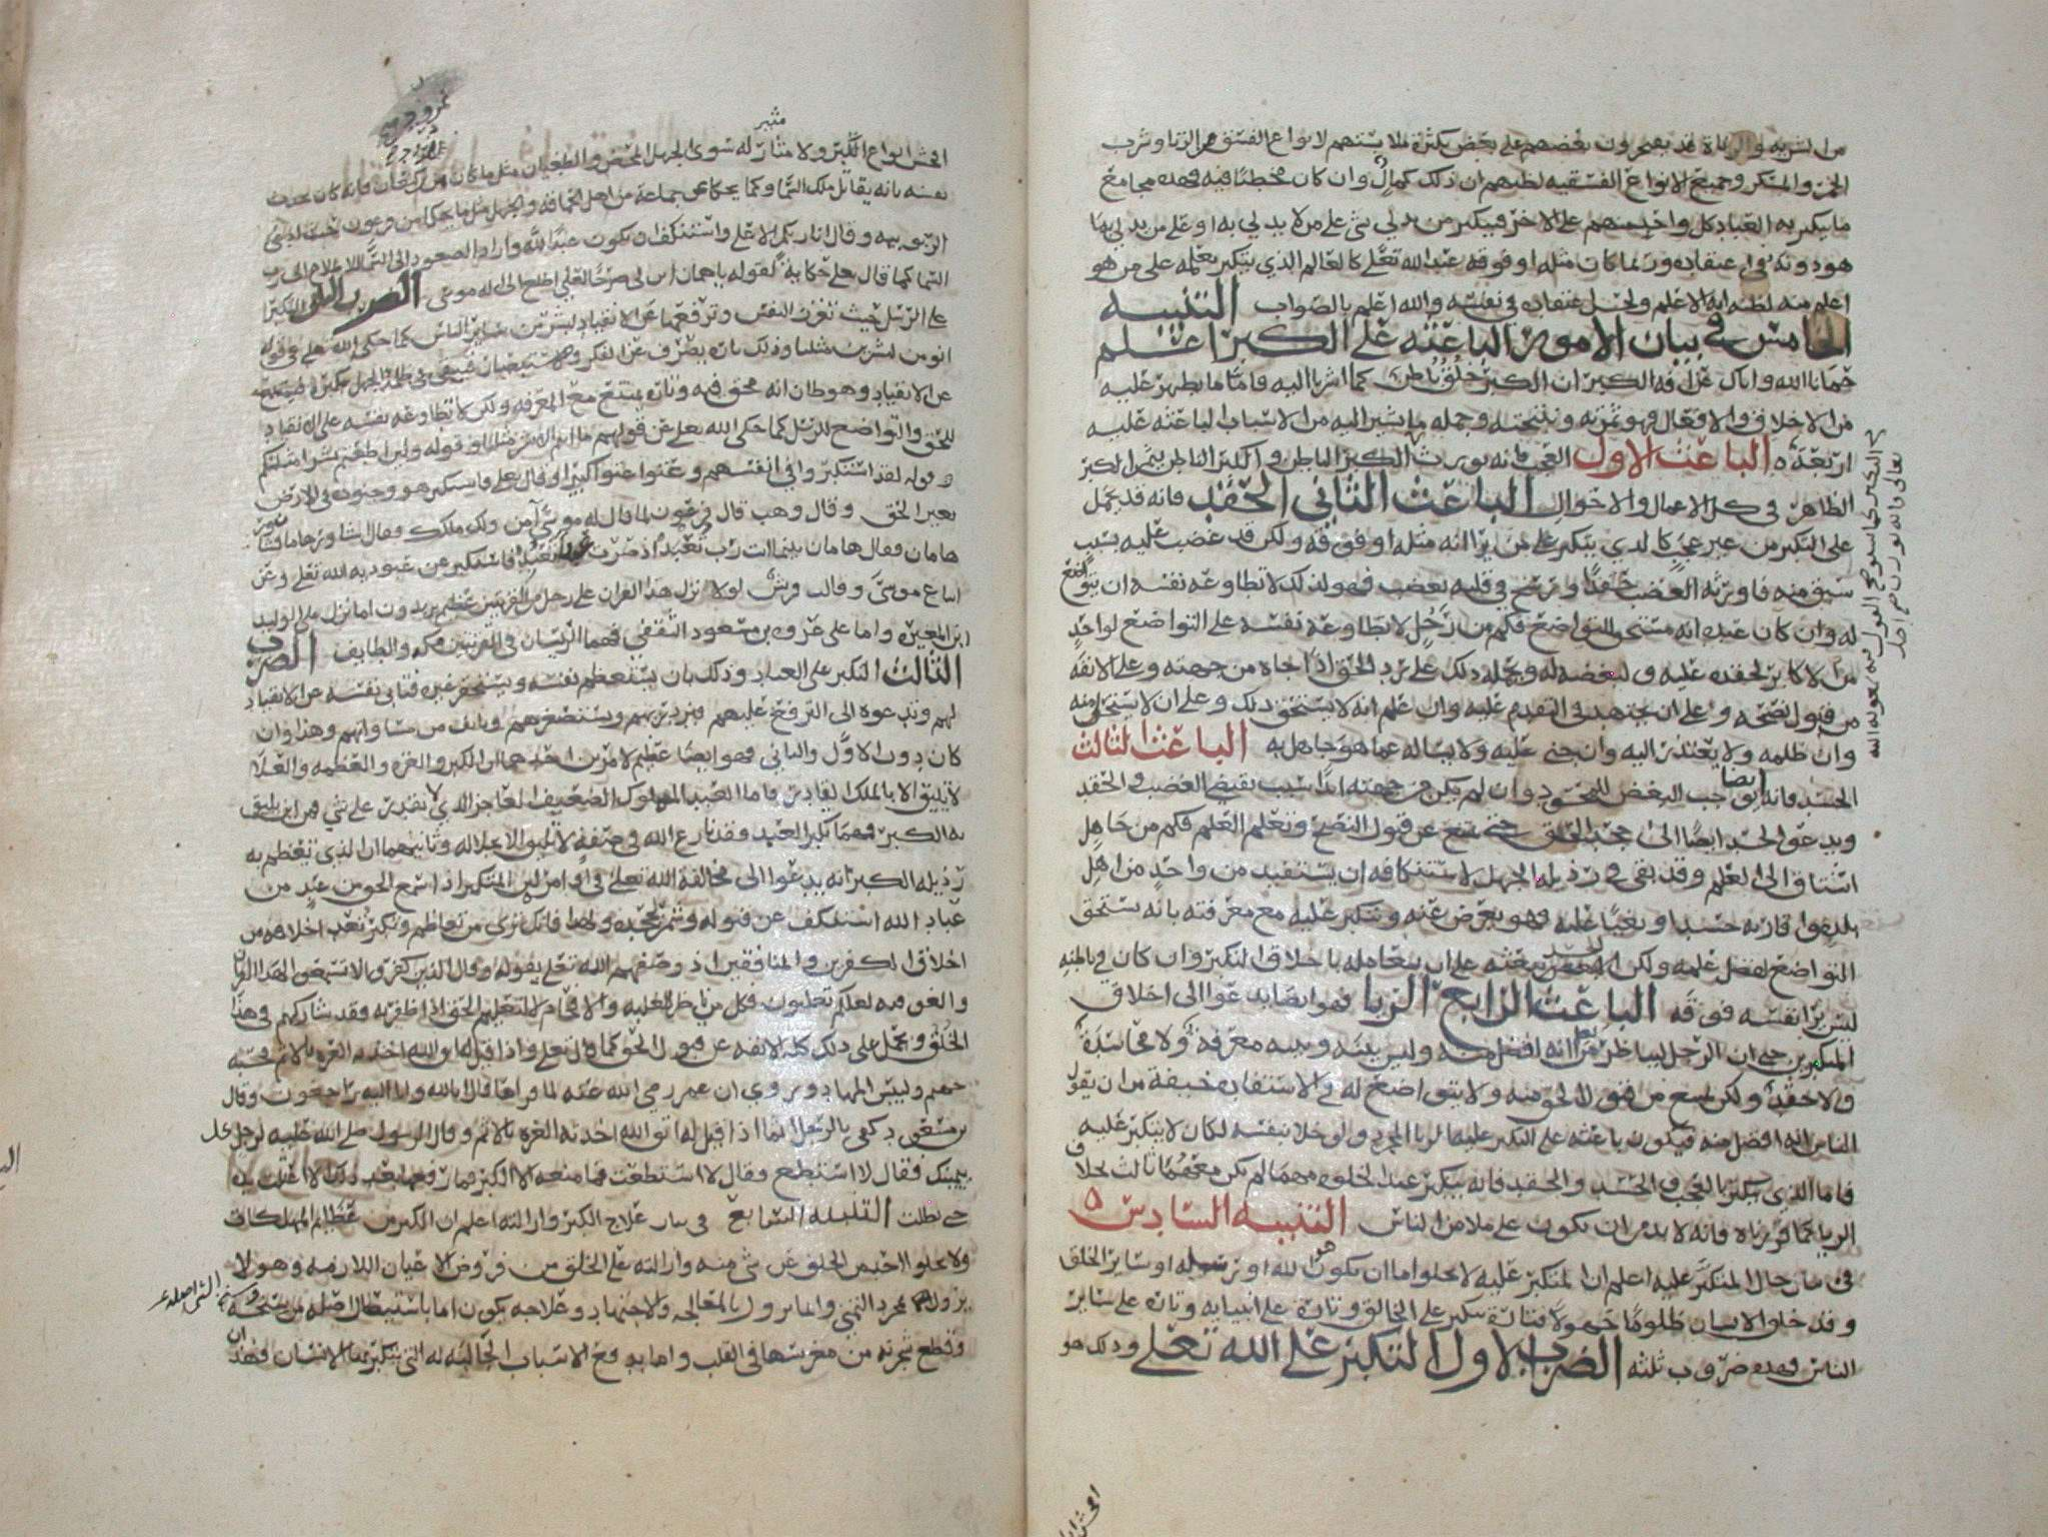 من الشربه والزياة قد يفتخرون بعضهم على بعض بكثرة ملابستهم لانواع الفسق من الزنا وشرب
الخمر والمنكر وجميع الانواع الفسقيه لظنهم ان ذلك كمال وان كان مخطئا فيه فهذه مجامع
ما يتكبر به العباد كل واحد منهم على الاخر فيتكبر من يدلي بشي على من لا يدلي به او على من يدلي بما
هو دونه في اعتقاده وربما كان مثله او فوقه عند الله تعالى كالعالم الذي يتكبر بعلمه على من هو
اعلم منه لظنه انه الاعلم ولحسن اعتقاده في نفسه والله اعلم بالصواب التنبيه
الخامس في بيان الامور الباعثه على الكبر اعلم
حمانا الله واياك عن افه الكبر ان الكبر خلق باطن كما اشرنا اليه فاما ما يظهر عليه
من الاخلاق والافعال فهو ثمرته ونتيجته وجمله ما نشير اليه من الاسباب الباعثه عليه
اربعة الباعث الاول العجب فانه يورث الكبر الباطن والكبر الباطن يثمر الكبر
الظاهر في كل الاعمال والاحوال الباعث الثاني الحقد فانه قد يحمل
على التكبر من غير عجب كالذي يتكبر على من يرا انه مثله او فوقه ولكن قد غضب عليه بسبب
سبق منه فاورثه الغضب حقدا ورسخ في قلبه بغضه فهو لذلك لا تطاوعه نفسه ان يتواضع
له وان كان عنده انه مستحق للتواضع فكم من رجل لا تطاوعه نفسه على التواضع لواحد
من الاكابر لحقده عليه ولبغضه له ويحمله ذلك على رد الحق اذا جاه من جهته وعلى الانفه
من قبول نصحه وعلى ان يجتهد في التقدم عليه وان علم انه لا يستحق ذلك وعلى ان لا يستحل منه
وان ظلمه ولا يعتذر اليه وان جنى عليه ولا يساله عما هو جاهل به الباعث الثالث
الحسد فانه ايضا يوجب البغض للمحسود وان لم يكن من جهته ايذا بسبب يقتضي الغضب والحقد
ويدعو الحسد ايضا الى جحد الحق حتى يمنع عن قبول النصح وتعلم العلم فكم من جاهل
اشتاق الى العلم وقد بقي في رذيله الجهل لاستنكافه ان يستفيد من واحد من اهل
بلده او اقاربه حسدا وبغيا عليه فهو يعرض عنه ويتكبر عليه مع معرفته بانه يستحق
التواضع لفضل علمه ولكن الحسد يبعثه على ان يعامله باخلاق التكبر وان كان في باطنه
ليس يرا نفسه فوقه الباعث الرابع الريا فهو ايضا يدعو الى اخلاق
المتكبرين حتى ان الرجل ليناظر من يعلم انه افضل منه وليس بينه وبينه معرفة ولا محاسدة
ولا حقد ولكن يمتنع من قبول الحق منه ولا يتواضع له في الاستفاده خيفة من ان يقول
الناس انه افضل منه فيكون باعثه على التكبر عليه الريا المجرد ولو خلا بنفسه لكان لا يتكبر عليه
فاما الذي يتكبر بالعجب والحسد والحقد فانه يتكبر عند الخلوه مهما لم يكن معهما ثالث بخلاف
الريا كما قررناه فانه لا بد من ان يكون على ملا من الناس التنبيه السادس
في بيان حال المتكبر عليه اعلم ان المتكبر عليه لا يخلو اما ان يكون هو الله او رسوله او ساير الخلق
وقد خلق الانسان ظلوما جهولا فتارة يتكبر على الخالق وتارة على انبيايه وتارة على ساير
الناس فهذه ضروب ثلثه الضرب الاول التكبر على الله تعلى وذلك هو
افحش انواع الكبر ولا مثار له سوى الجهل المحض والطغيان مثل ما كان من نمرود فانه كان يحدث
نفسه بانه يقاتل ملك السما وكما يحكا عن جماعة من اهل الحماقه والجهل مثل ما يحكى من فرعون حيث ادعى
الربوبيه وقال انا ربكم الاعلى واستنكف ان يكون عبدا لله واراد الصعود الى السما
السما كما قال تعلى حكاية لقوله يا هامان ابن لي صرحا لعلي اطلع الى اله موسى الضرب الثاني التكبر
على الرسل حيث تعزز النفس وترفعها عن الانقياد لبشر من ساير الناس كما حكى الله تعلى في قوله
انومن لبشرين مثلنا وذلك بان يصرف عن الفكر والاستبصار فيبقى في ظلمة الجهل بكبره فيمتنع
عن الانقياد وهو ظان انه محق فيه وتارة يمتنع مع المعرفه ولكن لا تطاوعه نفسه على الانقياد
للحق والتواضع للرسل كما حكى الله تعلى عن قولهم ان انتم الا بشر مثلنا وقوله ولين اطعتم بشرا مثلكم
وقوله لقد استكبروا في انفسهم وعتوا عتوا كبيرا وقال تعلى واستكبر هو وجنوده في الارض
بغير الحق وقال وهب قال فرعون لما قال له موسى آمن ولك ملكك فقال اشاور هامان فشاور
هامان فقال هامان بينما انت رب تعبد اذ صرت عبدا تعبد فاستكبر عن عبوديه الله تعلى وعن
اتباع موسى وقالت قريش لولا نزل هذا القران على رجل من القريتين عظيم يريدون اما نزل على الوليد
ابن المغيره واما على عروه بن مسعود الثقفي فهما الريسان في القريتين مكه والطايف الضرب
الثالث التكبر على العباد وذلك بان يستعظم نفسه ويستحقر غيره فتابى نفسه عن الانقياد
لهم وتدعوه الى الترفع عليهم فيزدريهم ويستصغرهم ويانف من مساواتهم وهذا وان
كان دون الاول والثاني فهو ايضا عظيم لامرين احدهما ان الكبر والعزه والعظمه والعلا
لا يليق الا بالملك القادر فاما العبد المملوك الضعيف العاجز الذي لا يقدر على شي فمن اين يليق
به الكبر فمهما تكبر العبد وقد نازع الله في صفة لا تليق الا بجلاله وثانيهما ان الذي تعظم به
رذيله الكبر انه يدعوا الى مخالفة الله تعلى في اوامره لان المتكبر اذا سمع الحق من عبد من
عباد الله استنكف عن قبوله وتشمر لجحده ولهذا فانك ترى من تعاظم وتكبر تعد اخلاقه من
اخلاق الكفرين والمنافقين اذ وصفهم الله تعلى بقوله وقال الذين كفروا لا تسمعوا لهذا القران
والغوا فيه لعلكم تغلبون فكل من ناظر للغلبه والافحام لا ليغنم الحق اذا ظفر به فقد شاركهم في هذا
الخلق ويحمل على ذلك كله الانفه عن قبول الحق كما قال تعلى واذا قيل له اتق الله اخذته العزه بالاثم فحسبه
جهنم ولبيس المهاد وروي ان عمر رضي الله عنه لما قراها قال انا لله وانا اليه راجعون وقال
ابن مسعود كفى بالرجل اثما اذا قيل له اتق الله اخذته العزه بالاثم وقال الرسول صلى الله عليه لرجل كل
بيمينك فقال لا استطيع وقال لا استطعت فما منعه الا الكبر فما رفعها بعد ذلك اي اعتلت يده
حتى بطلت التنبيه السابع في بيان علاج الكبر وازالته اعلم ان الكبر من عظايم المهلكات
ولا يخلوا احد من الخلق عن شي منه وازالته على الخلق من فروض الاعيان اللازمه وهو لا
يزول بمجرد التمني وانما يزول بالمعالجه والاجتهاد وعلاجه يكون اما باستيصال اصله من سنخه
وقطع شجرته من مغرسها في القلب واما بدفع الاسباب الجالبه له التي يتكبر بها الانسان فهذان